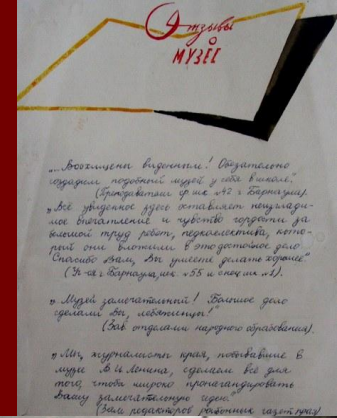 Отзывы
о
МУЗЕЕ
„...Восхищены виденным! Обязательно
создадим подобный музей у себя в школе."
(Преподаватели шк. №2 г. Барнаула).
„Всё увиденное здесь оставляет неизглади-
мое впечатление и чувство гордости за
большой труд ребят, педколлектива, кото-
рый они вложили в это достойное дело.
Спасибо Вам, Вы умеете делать хорошее"
(г. Барнаул, шк. №55 и спецшк №1).
„ Музей замечательный! Большое дело
сделали Вы, ребятишки!"
(Зав. отделами народного образования).
„ Мы, журналисты края, побывавшие в
музее В.И. Ленина, сделаем всё для
того, чтобы широко пропагандировать
Вашу замечательную идею."
(Зам. редакторов районных газет края)